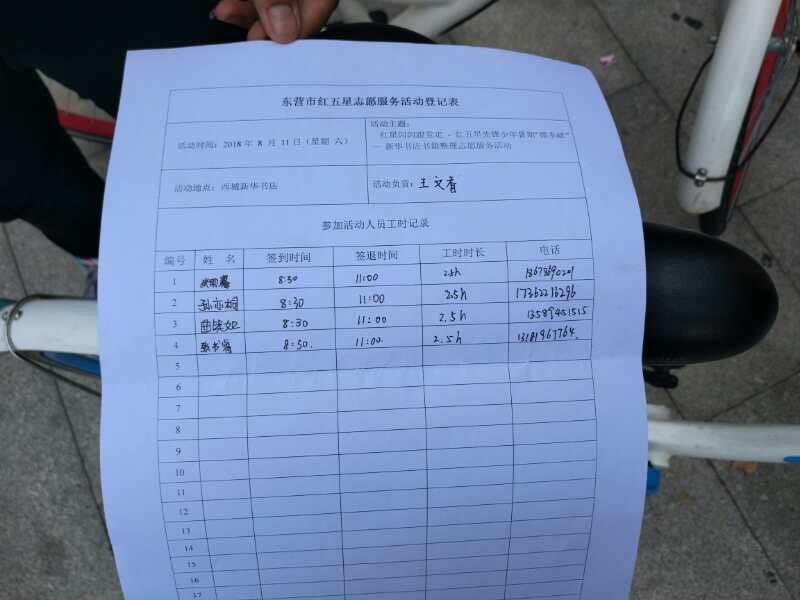 东营市红五星志愿服务活动登记表
活动时间：2018 年 8 月 11日（星期 六）
活动主题：
红星闪闪跟党走 · 红五星先锋少年暑期
— 新华书店书籍整理志愿服务活动
活动地点：西城新华书店
活动负责：王文香
参加活动人员工时记录
编号 姓 名 签到时间 签退时间 工时时长 电话
1 8:30 11:00 2.5h
2 孙亦桐 8:30 11:00 2.5h 17362216296
3 8:30 11:00 2.5h 13589451515
4 8:30. 11:00. 2.5h 13181967764.
5
6
7
8
9
10
11
12
13
14
15
16
17